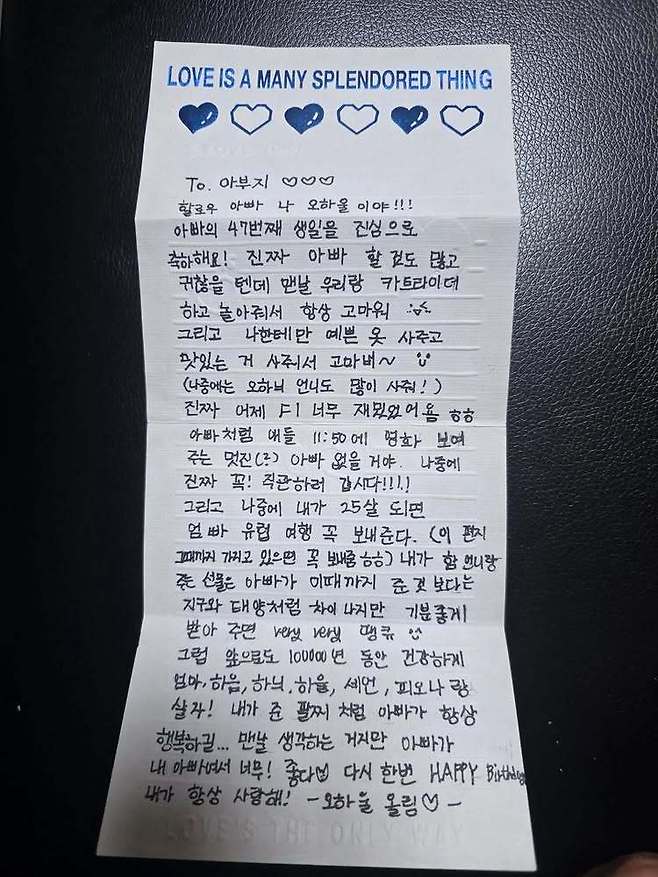 LOVE IS A MANY SPLENDORED THING
To. 아부지 ♡♡♡
할로우 아빠 나 오하율이야!!!
아빠의 47번째 생일을 진심으로
축하해요! 진짜 아빠 할 것도 많고
귀찮을 텐데 맨날 우리랑 카트라이더
하고 놀아줘서 항상 고마워
그리고 나한테만 예쁜 옷 사주고
맛있는 거 사줘서 고마버~
(나중에는 오하늬 언니도 많이 사줘!)
진짜 어제 F1 너무 재밌었어욤 ㅎㅎ
아빠처럼 애들 11:50에 영화 보여
주는 멋진(?) 아빠 없을거야. 나중에
진짜 꼭! 직관하러 갑시다!!!!
그리고 나중에 내가 25살 되면
엄빠 유럽 여행 꼭 보내준다. (이 편지
그때까지 가지고 있으면 꼭 보내줌 ㅎㅎ) 내가 언니랑
주는 선물은 아빠가 이때까지 준 것 보다는
지구와 태양처럼 차이 나지만 기분좋게
받아 주면 very very 땡큐
그럼 앞으로도 100000년 동안 건강하게
엄마, 하음, 하늬, 하율, 세언, 피오나랑
살자! 내가 준 팔찌 처럼 아빠가 항상
행복하길... 맨날 생각하는 거지만 아빠가
내 아빠여서 너무! 좋다♡ 다시 한번 HAPPY Birthday
내가 항상 사랑해! -오하율 올림♡-
LOVE'S THE ONLY WAY